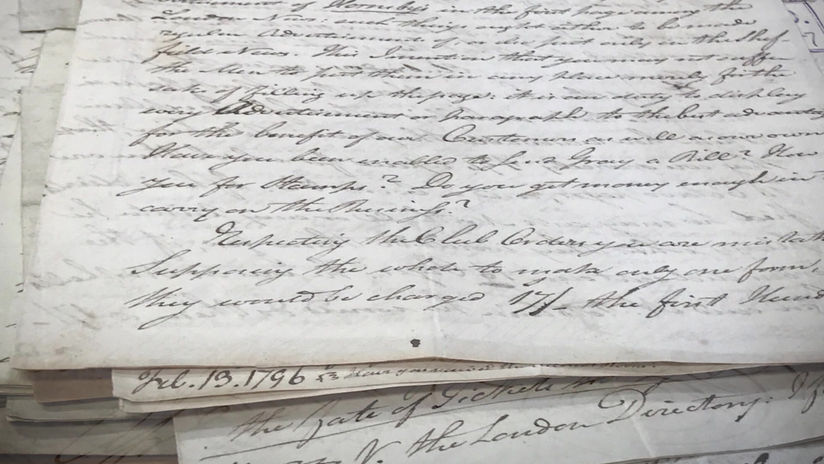 in the first
London News: such things ought either to be made
regular Advertisements of, or be put only in the
filled News. This I mention that you may not suffer
the Men to put them in any place merely for the
sake of filling up the page; it is our duty to display
every Advertisement or Paragraph to the best advantage
for the benefit of our Customers as well as our own
Have you been enabled to Gray a Bill? How
you for Stamps? Do you get money enough in
carry on the Business?
Respecting the Club Orders you are mistaken
Supposing the whole to make only one form,
they would be charged 17/- the first Hund
Feb. 13. 1796 Have you received the
the Date of Tickets
the London Directory. I